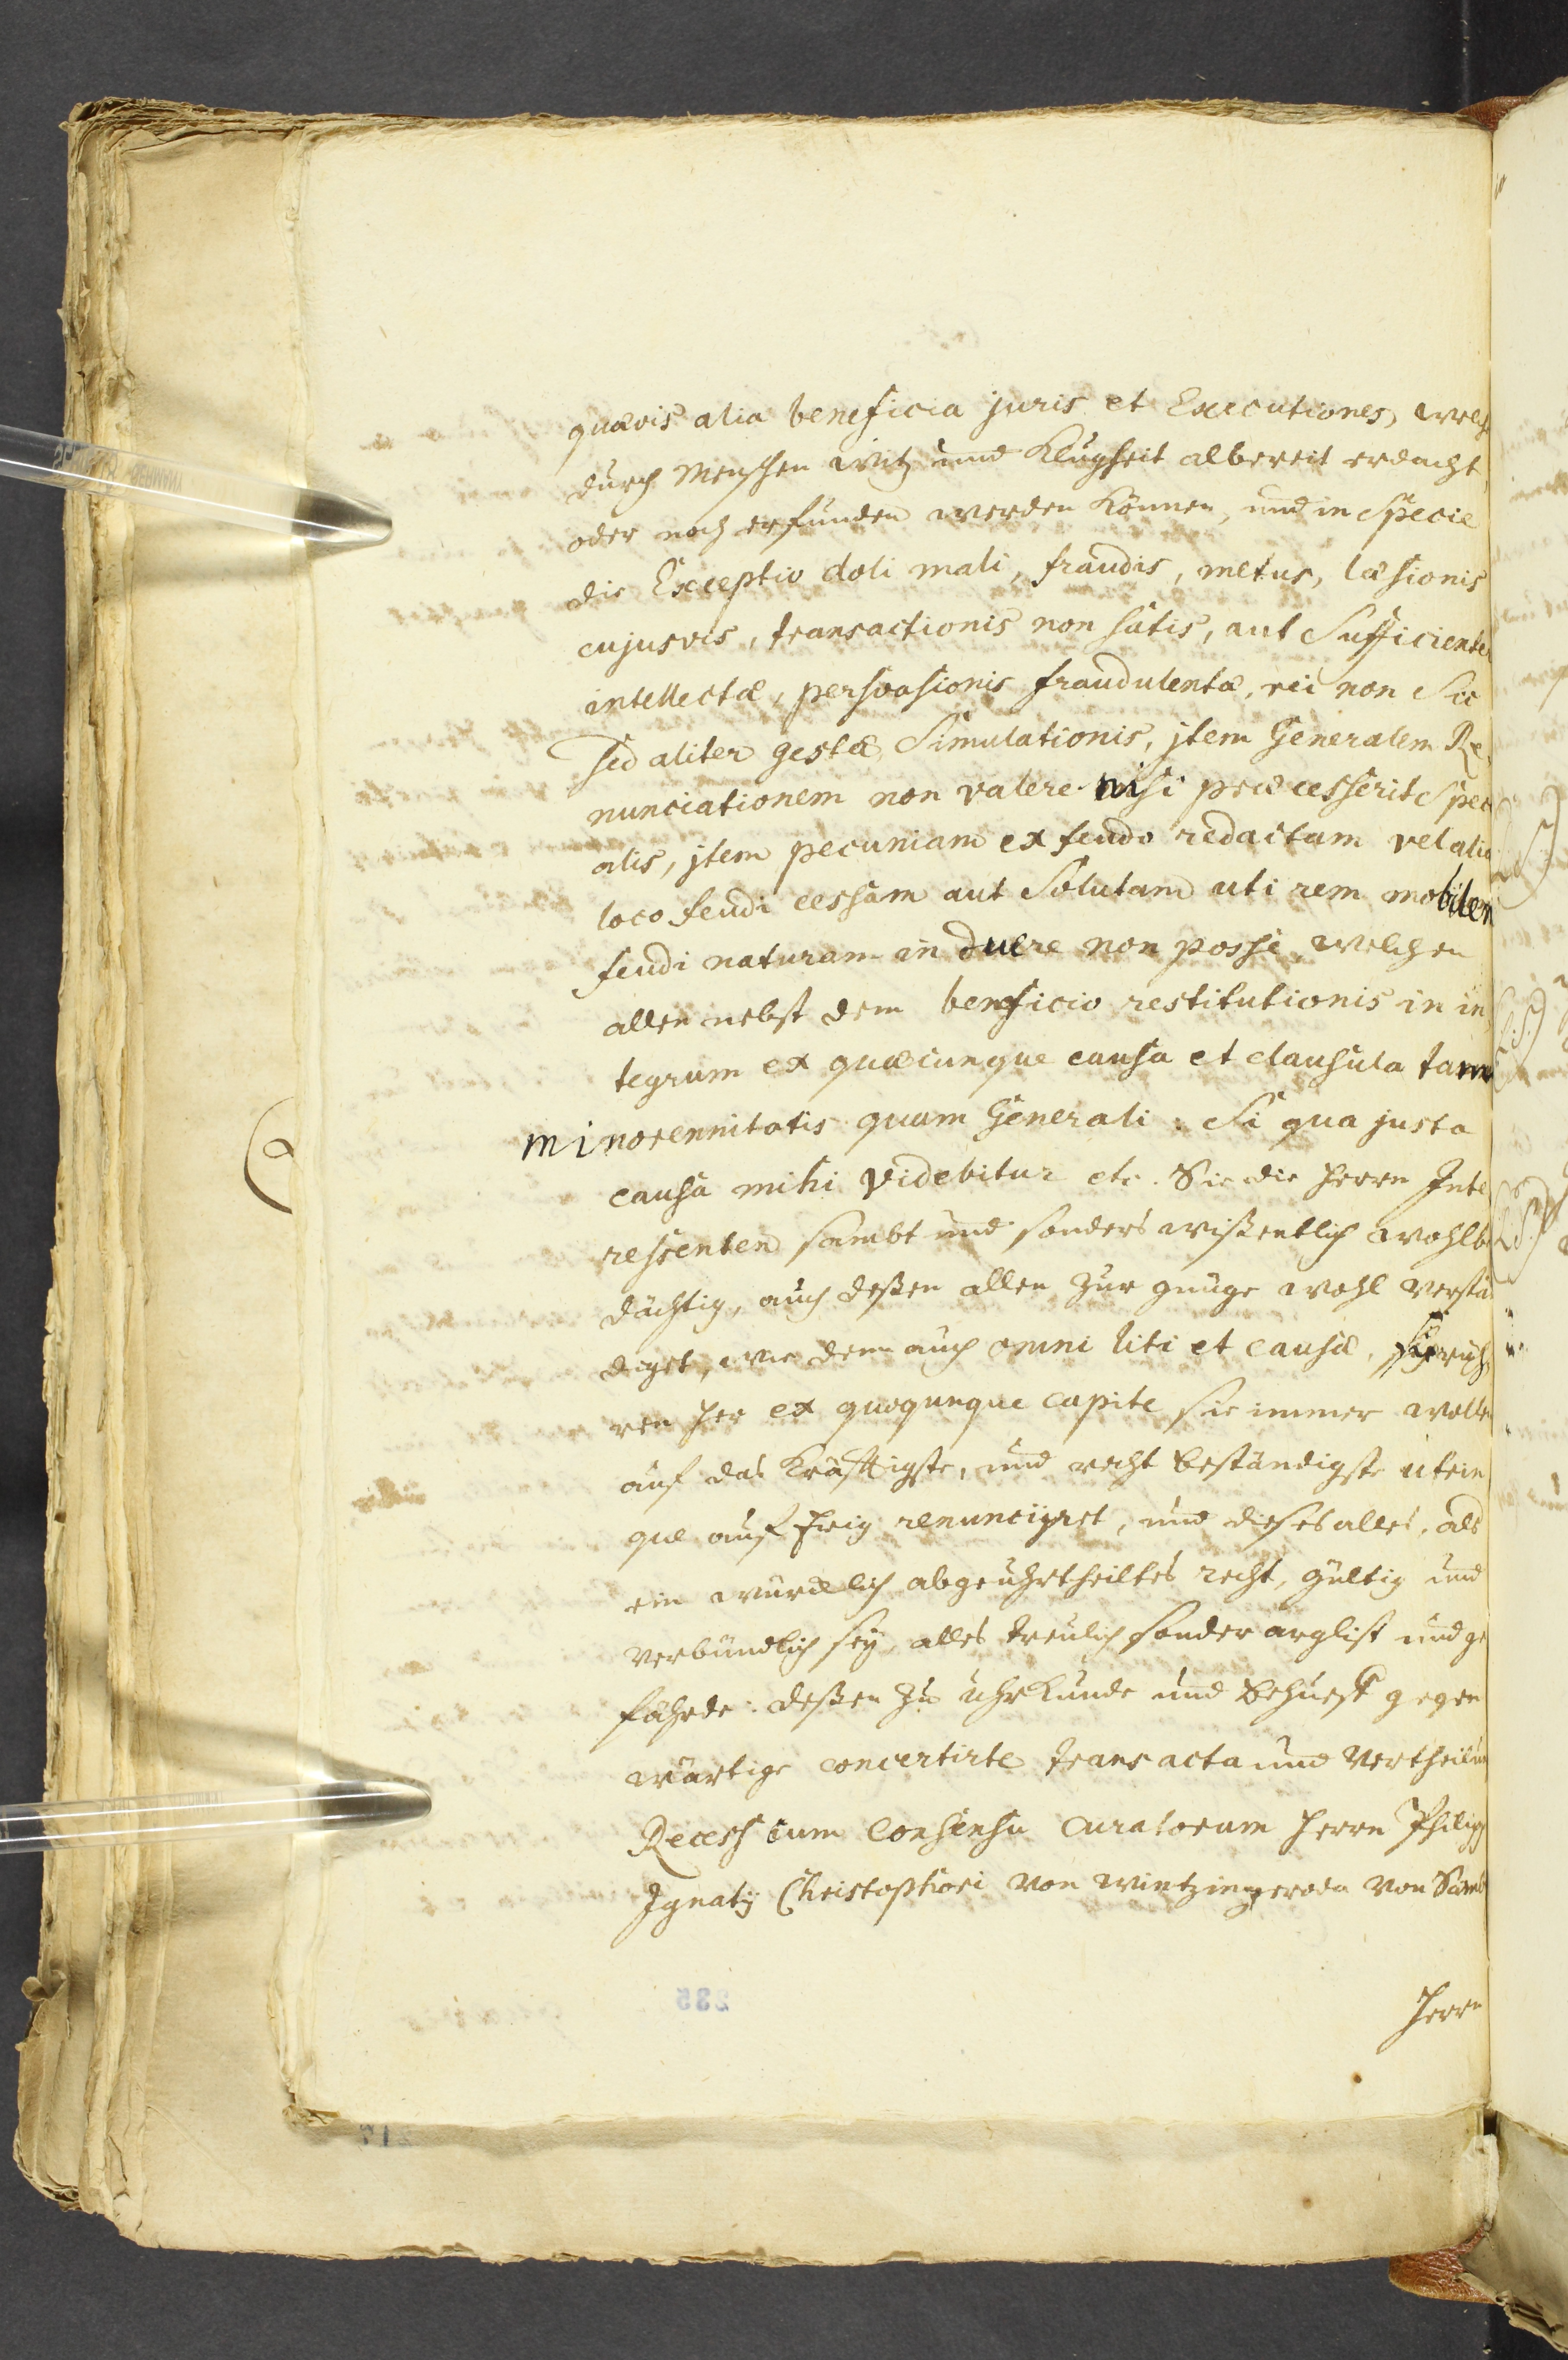 quævis alia beneficia juris et Executiones, welche
durch Menschen Witz und Klugheit albereit erdacht,
oder noch erfunden werden können, und in Specie
die Exceptio doli mali, fraudis, metus, læsionis
cujusvis, transactionis non satis, aut Sufficienter
intellectæ, persvasionis fraudulentæ, rei non Sic
sed aliter gestæ, Simulationis, jtem Generalem Re
nunciationem non valere nisi præcesserit Speci
alis, jtem pecuniam ex feudo redactam vel alio
loco feudi cessam aut Solutam uti rem mobilem
feudi naturam in duere non possi, welchen
allen nebst dem benficio restitutionis in in
tegrum ex quæcunque causa et clausula tam
minorennitatis quam Generali: Si qua justa
causa mihi videbitur etc. Sie die Herrn Inte
ressenten sambt und sonders wißentlich wohlbe
dächtig, auch deßen allen zur gnüge wohl verstä
diget, wie denn auch omni liti et causæ,
ren her ex quoqunque capite sie immer wolle
auf das Kräfftigste, und recht beständigste utrin
que auf Ewig renunciyret, und dieses alles, als
ein würcklich abgeuhrtheiltes recht, gültig und
verbündlich sey, alles treulich sonder arglist und ge
fährde: deßen zu uhrkunde und behueff gegen
wärtige concertirte transacta und Vertheilung
Recess cum Consensu Curatorum Herrn Philipp
Ignatij Christophori von Wintzingeroda von
Herrn
235
217